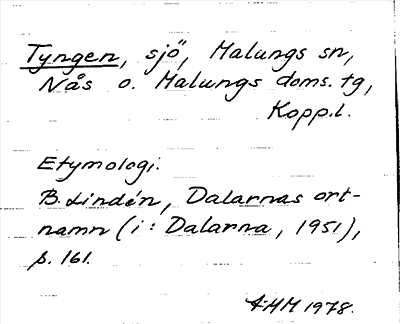 Tyngen, sjö, Malungs sn,
Nås o. Malungs doms. tg,
Kopp.l.
Etymologi.
B. Lindén, Dalarnas ort-
namn (i: Dalarna, 1951),
s. 161.
AHM 1978.